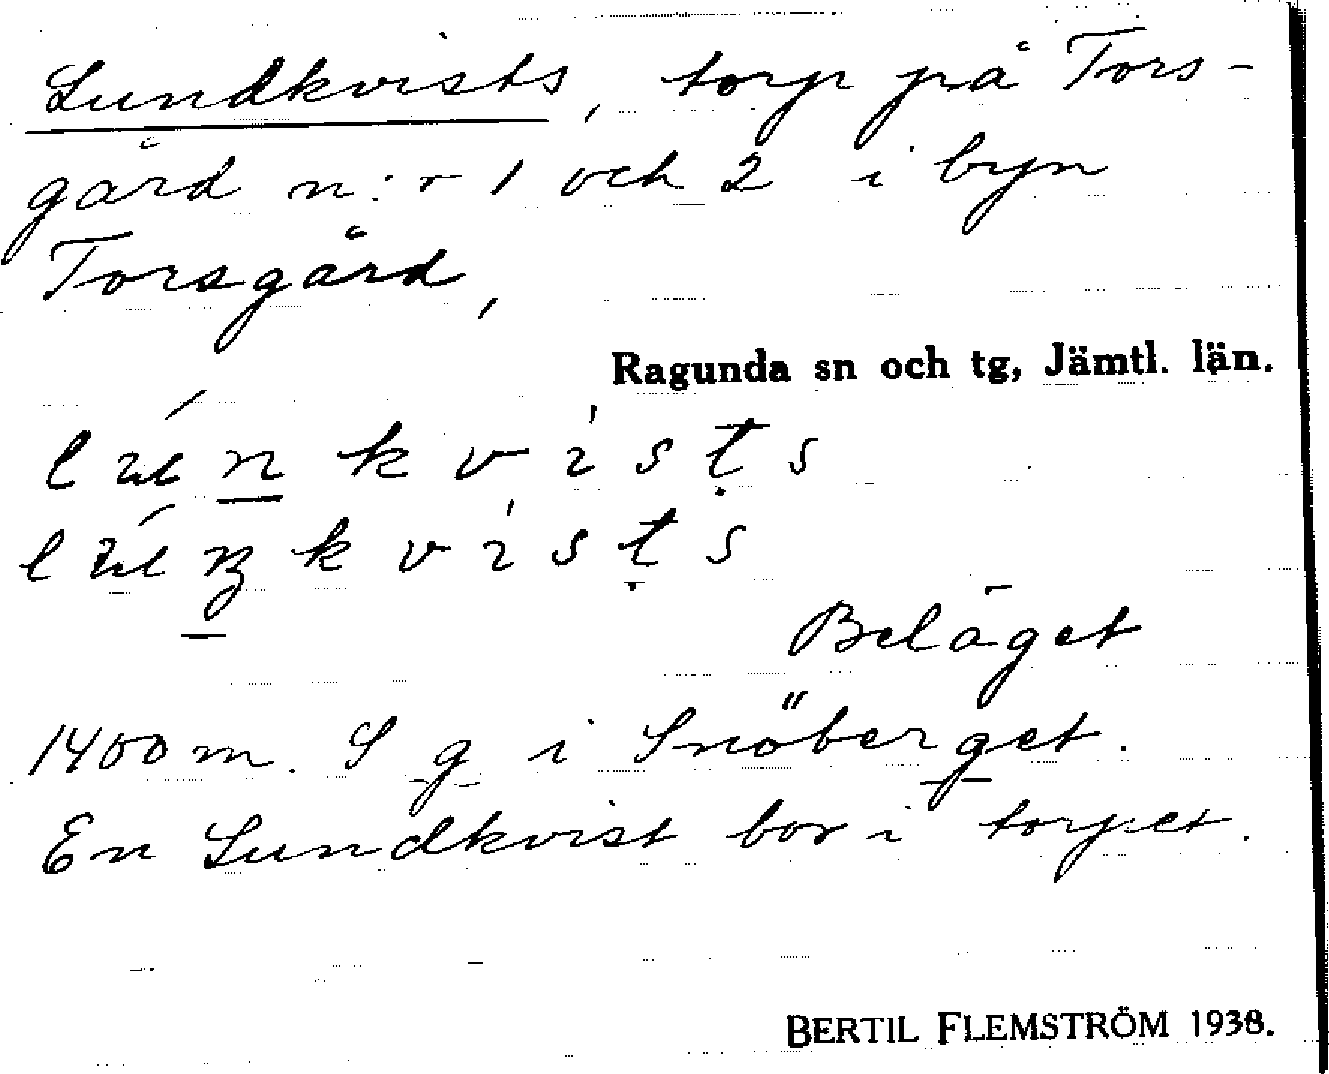 Lundkvists, torp på Tors-
gård n:r 1 och 2 i byn
Torsgård,
Ragunda sn och tg, Jämtl. län.
Beläget
1400 m. S g i Snöberget.
En Lundkvist bor i torpet.
BERTIL FLEMSTRÖM 1938.